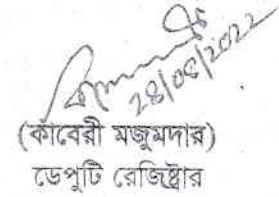 28/08/2022
(কাবেরী মজুমদার)
ডেপুটি রেজিষ্ট্রার